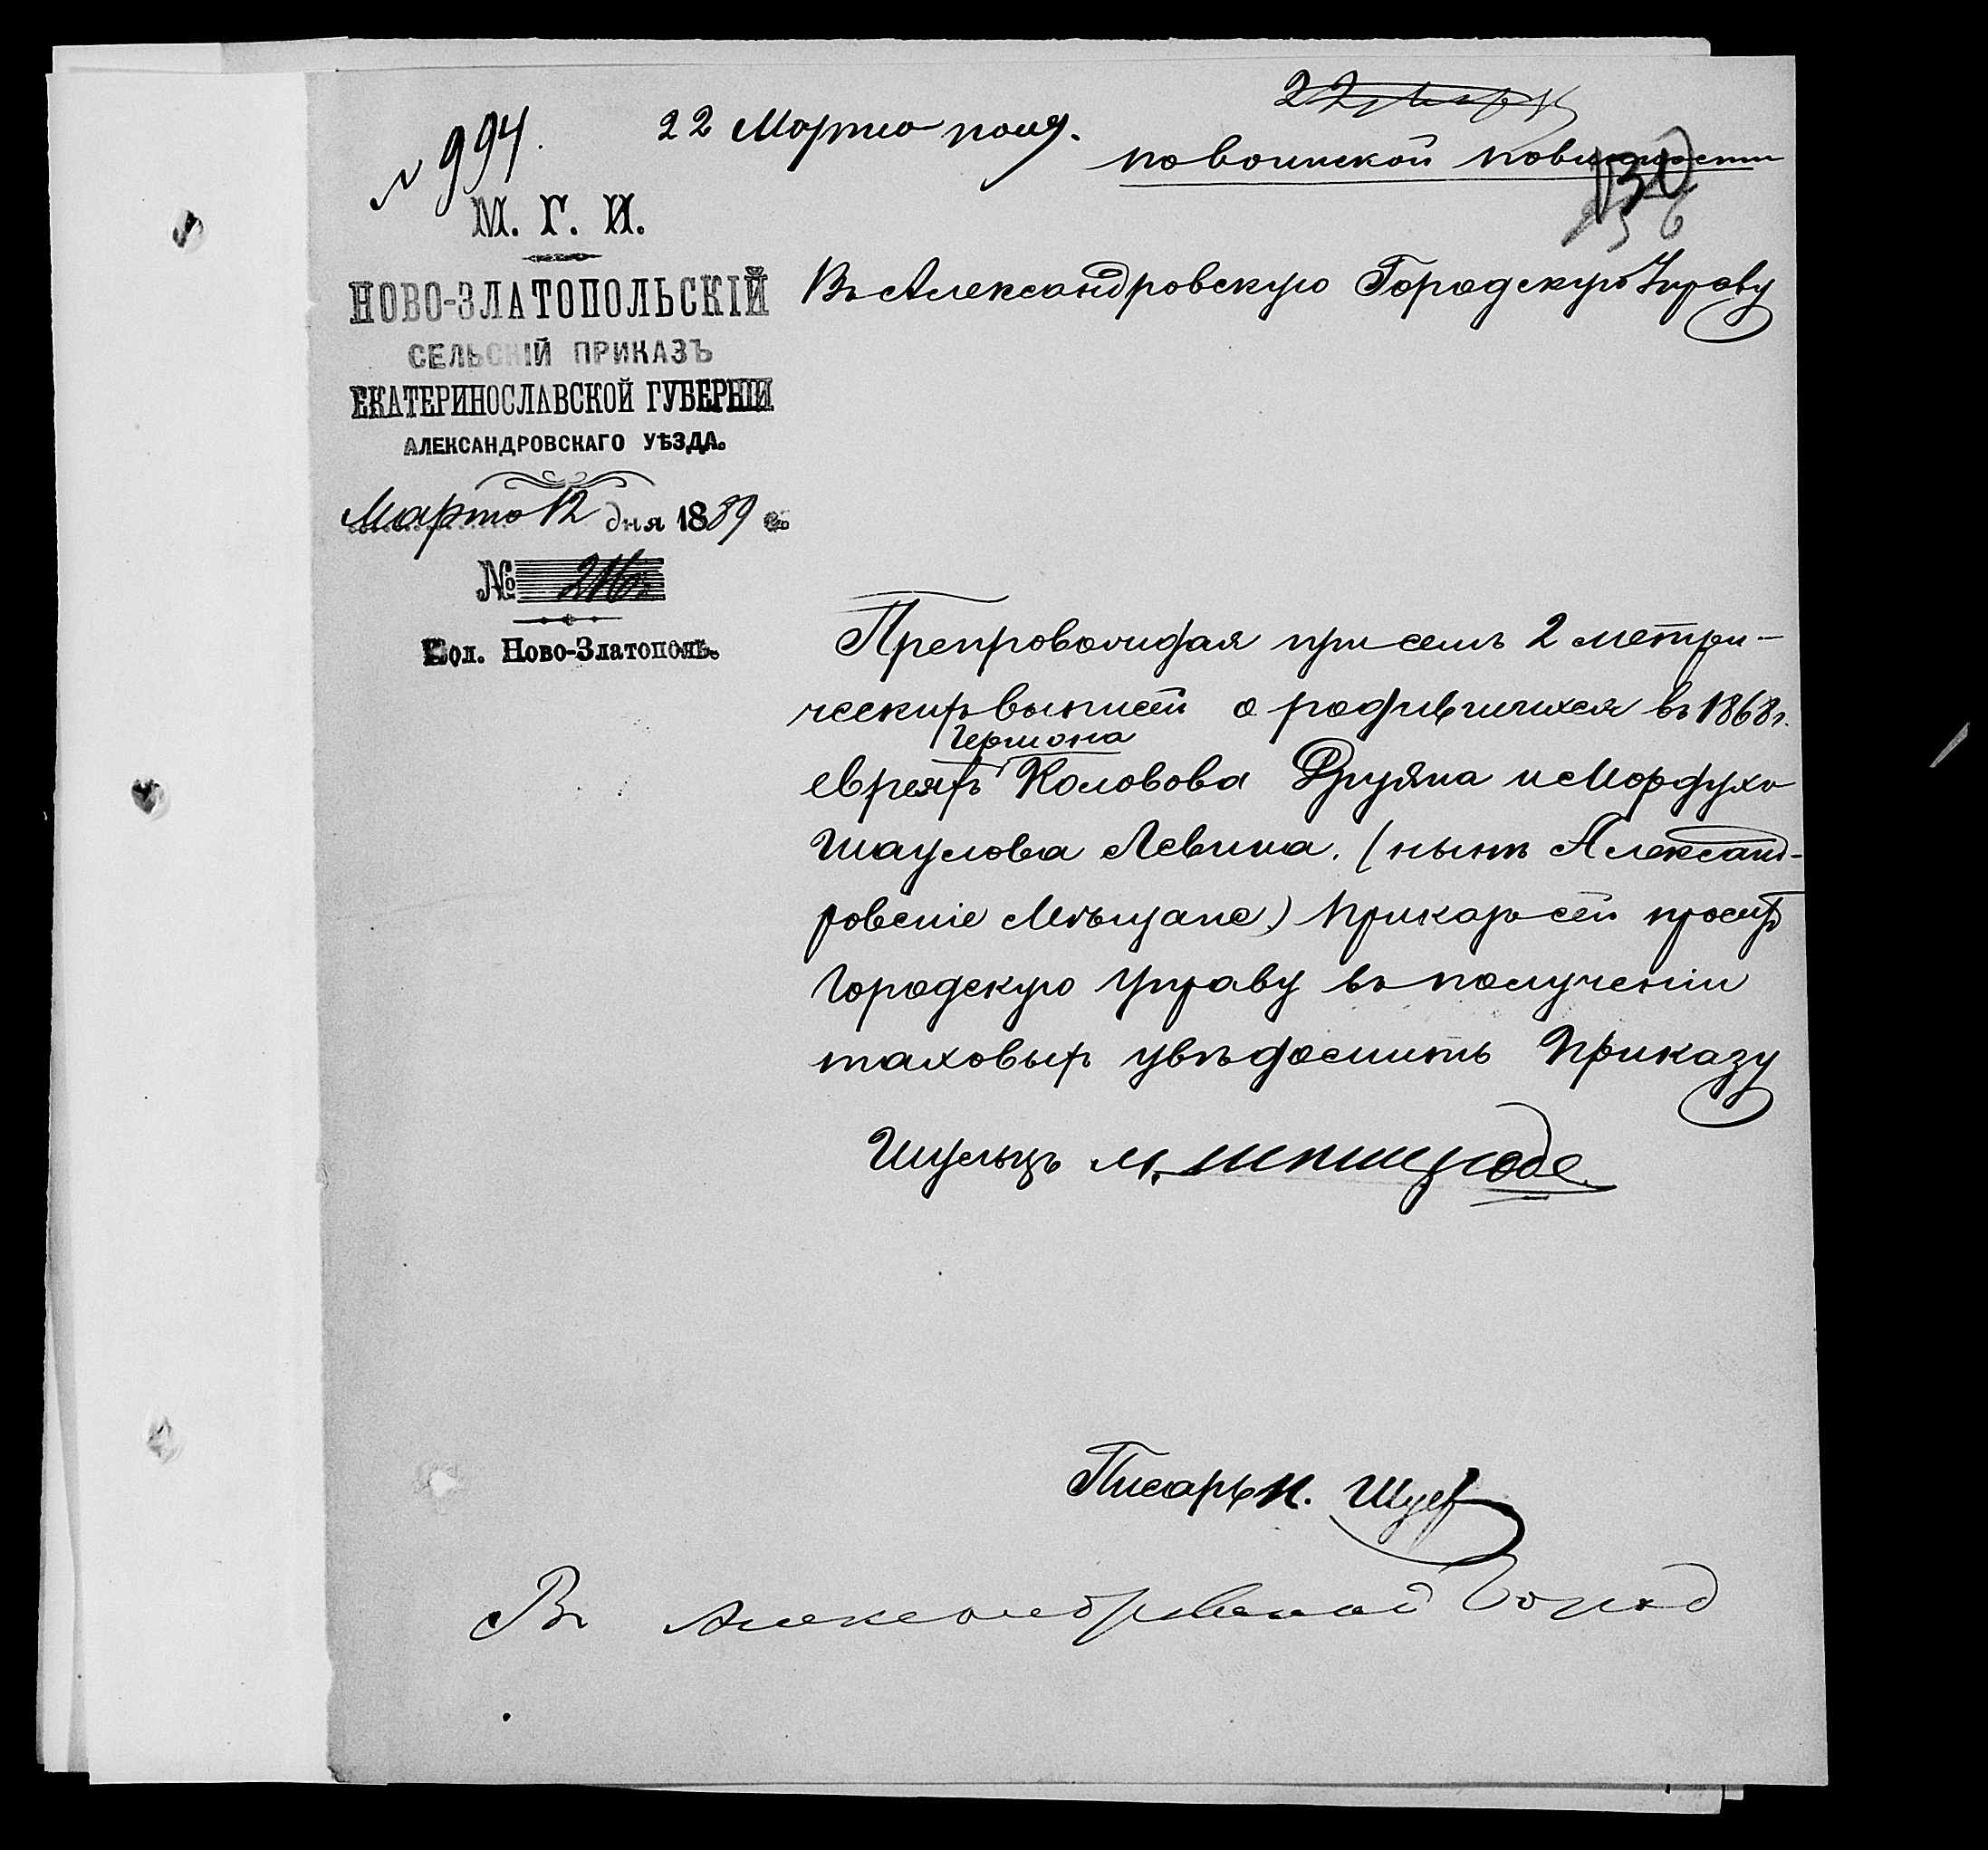 № 994.
22 Марта полу.
по воинской повинности
130
М. Г. И.
НОВО-ЗЛАТОПОЛЬСКІЙ
СЕЛЬСКІЙ ПРИКАЗЪ
ЕКАТЕРИНОСЛАВСКОЙ ГУБЕРНІИ
АЛЕКСАНДРОВСКАГО УѢЗДА.
Марта 12 дня 1889 г.
№
Кол. Ново-Златополь.
Въ Александровскую Городскую Управу
Препровождая при семъ 2 метри-
ческихъ выписи о родившихся въ 1868 г.
Гершона
евреяхъ Друяна и Мордуха
Шаулова Левина. (нынѣ Александ-
ровскіе Мѣщане) Приказъ сей проситъ
Городскую Управу въ полученіи
таковыхъ увѣдомить Приказу
Шульцъ М.
Писарь
Въ Город